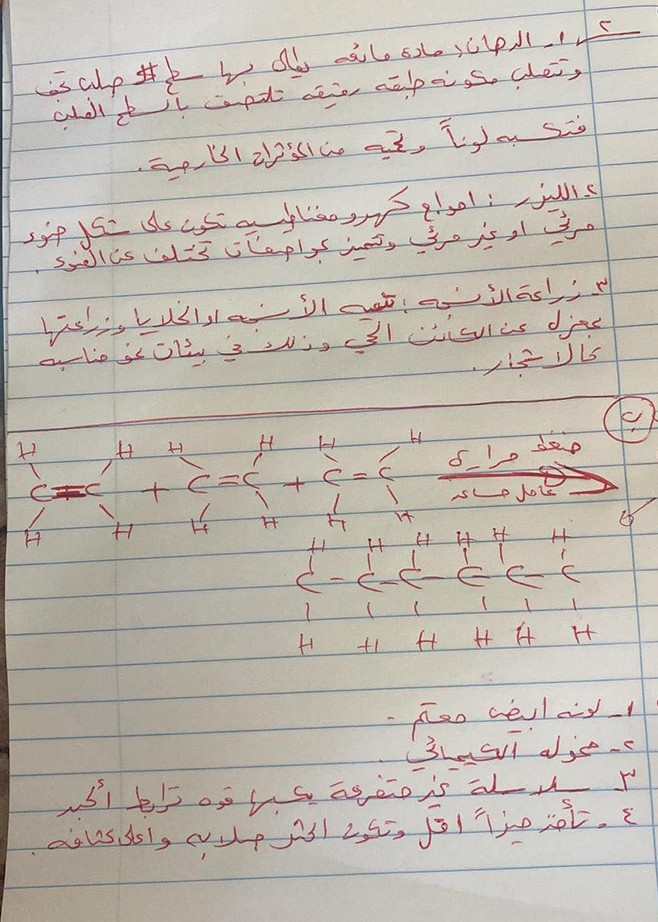 س٢ ١- الدهان: مادة مائعه يطلى بها سطح صلب تجف
وتتصلب مكونه طبقه رقيقه تلتصق بالسطح الصلب
فتكسبه لوناً وتحميه من المؤثرات الخارجية.
٢- الليزر: امواج كهرومغناطيسيه تكون على شكل ضوء
مرئي او غير مرئي وتتميز بمواصفات تختلف عن الضوء.
٣- زراعة الأنسجه: تنميه الأنسجه او الخلايا وزراعتها
بمعزل عن الكائن الحي وذلك في بيئات نمو مناسبه
كالاشجار.
ب
H H H H H H
C=C + C=C + C=C ضغط حرارة
H H H H H H عامل مساعد
H H H H H H
C - C - C - C - C - C
H H H H H H
١- لونه ابيض معتم.
٢- خموله الكيميائي.
٣- سلاسلة غير متفرعة يكسبها قوه ترابط أكبر
٤- تأخذ حيزاً اقل وتكون اكثر صلابه واعلى كثافه.